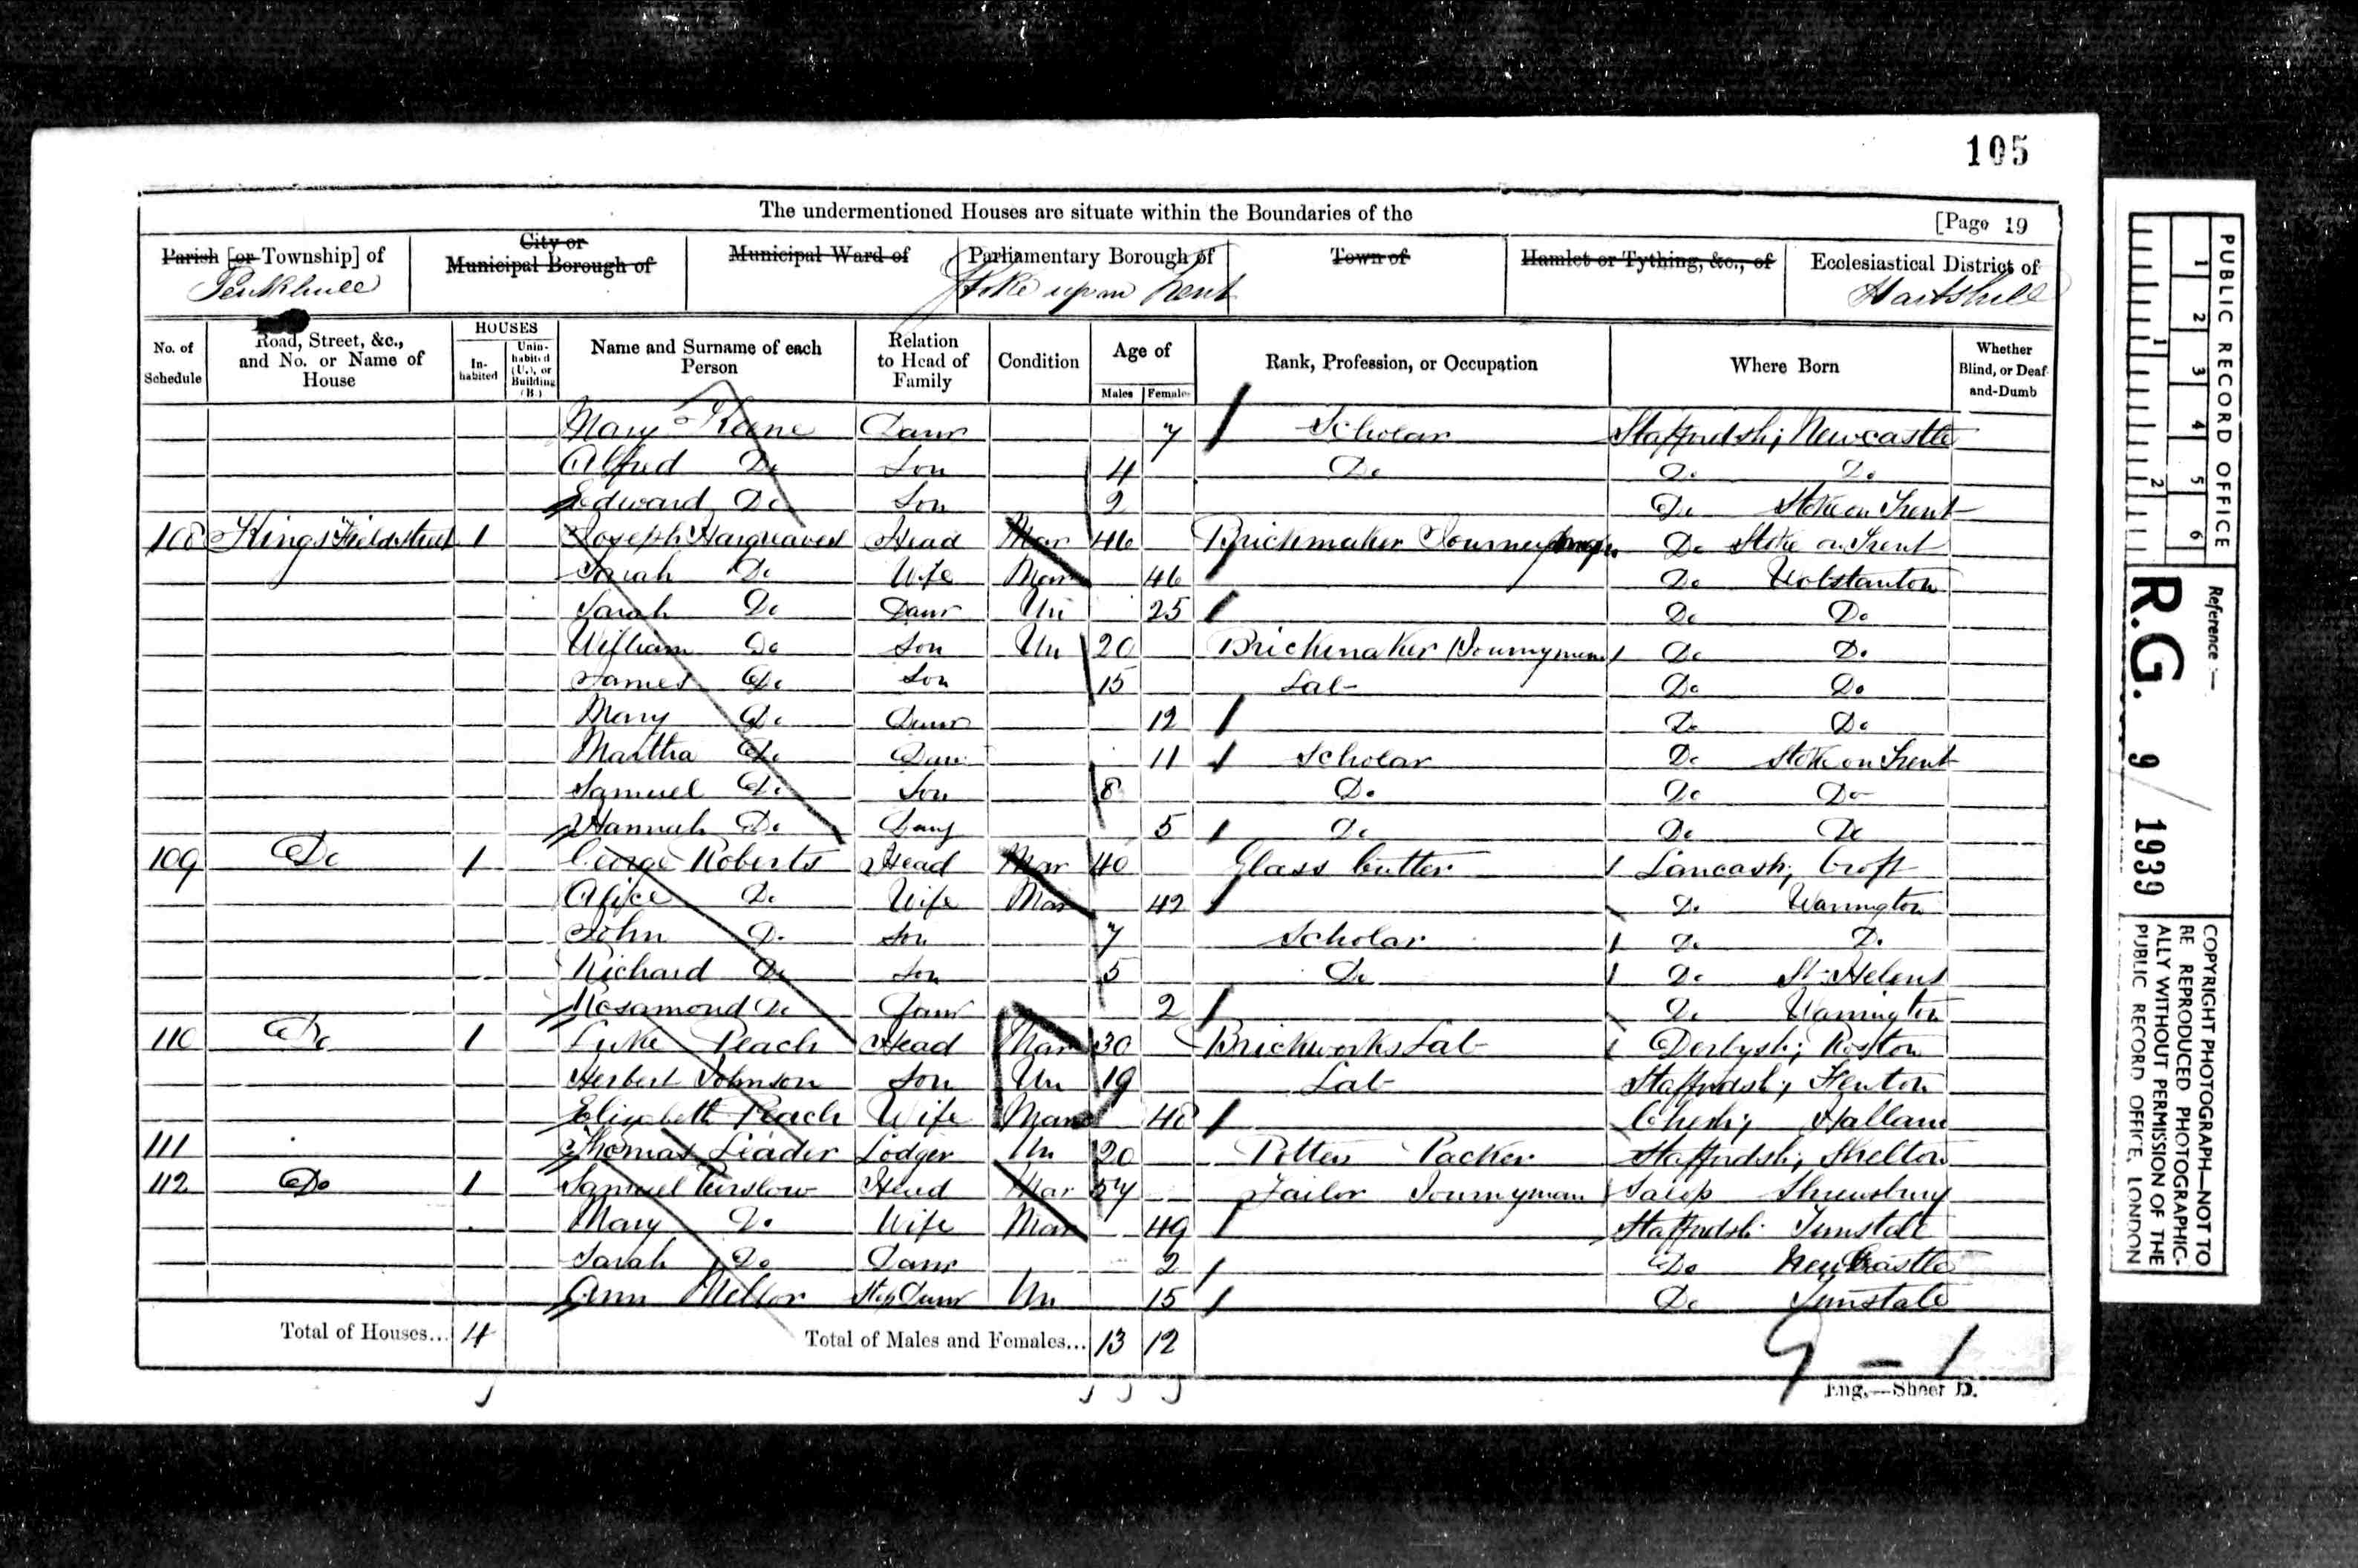 105
The undermentioned Houses are situate within the Boundaries of the
[Page 19
Parish [or Township] of
City or Municipal Borough of
Municipal Ward of
Parliamentary Borough of
Town of
Hamlet or Tything, &c., of
Ecclesiastical District of
Penkhull
Stoke upon Trent
Hartshill
No. of Schedule
Road, Street, &c., and No. or Name of House
HOUSES
In-habited
Unin-habited (U.), or Building (B.)
Name and Surname of each Person
Relation to Head of Family
Condition
Age of
Males
Females
Rank, Profession, or Occupation
Where Born
Whether Blind, or Deaf-and-Dumb
Mary Keene Daur 7 Scholar Staffordsh; Newcastle
Alfred Do Son 4 Do Do Do
Edward Do Son 2 Do Stoke on Trent
108 Kings Field Street 1 Joseph Hargreaves Head Mar 46 Brickmaker Do Stoke on Trent
Sarah Do Wife Mar 46 Do Wolstanton
Sarah Do Daur Un 25 Do Do
William Do Son Un 20 Brickmaker Journyman Do Do
James Do Son 15 Lab Do Do
Mary Do Daur 12 Do Do
Martha Do Daur 11 Scholar Do Stoke on Trent
Samuel Do Son 8 Do Do Do
Hannah Do Daur 5 Do Do Do
109 Do 1 George Roberts Head Mar 40 Glass Cutter Lancash; Croft
Alice Do Wife Mar 42 Do Warrington
John Do Son 7 Scholar Do Do
Richard Do Son 5 Do Do St Helens
Rosamond Do Daur 2 Do Warrington
110 Do 1 Luke Peach Head Mar 30 Brickworks Lab Derbysh; Roston
Herbert Johnson Son Un 19 Lab Staffordsh;
Elizabeth Peach Wife Mar 48 Chesh; Hallam
111 Thomas Leader Lodger Un 20 Potters Packer Staffordsh; Shelton
112 Do 1 Samuel Purslow Head Mar 57 Tailor Journyman Salop Shrewsbury
Mary Do Wife Mar 49 Staffordsh Tunstall
Sarah Do Daur 2 Do Newcastle
Ann Mellor Step Daur Un 15 Do Tunstall
Total of Houses... 4
Total of Males and Females... 13 12
9 - 1
Eng.—Sheet D.
PUBLIC RECORD OFFICE
1 2 3 4 5 6
1 2
Reference :—
R.G. 9/1939
COPYRIGHT PHOTOGRAPH—NOT TO
BE REPRODUCED PHOTOGRAPHIC-
ALLY WITHOUT PERMISSION OF THE
PUBLIC RECORD OFFICE, LONDON